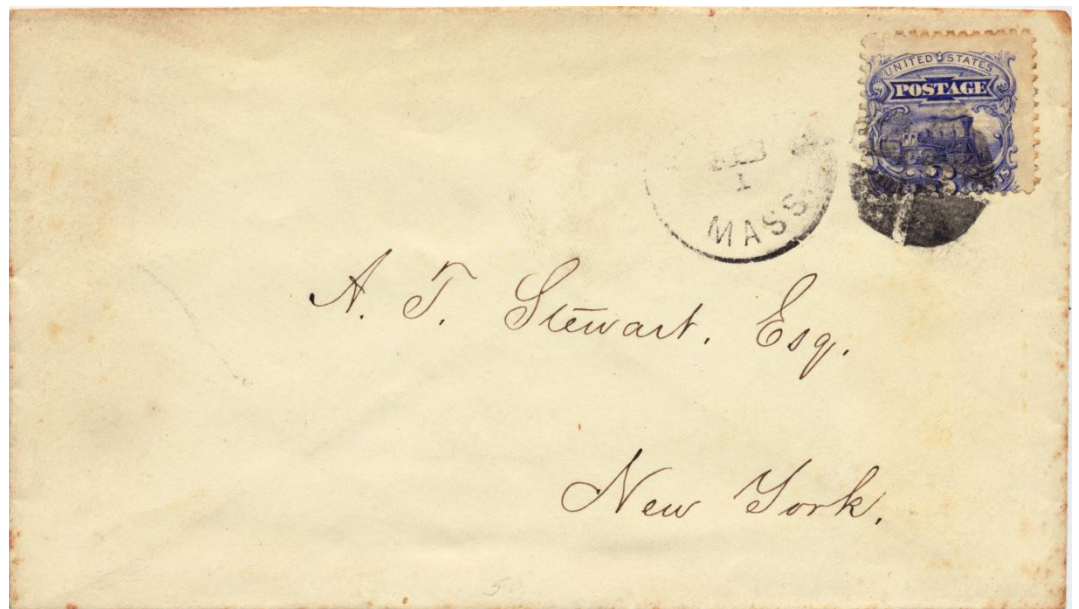 UNITED STATES
POSTAGE
3
1
MASS.
A. T. Stewart, Esq.
New York.
50